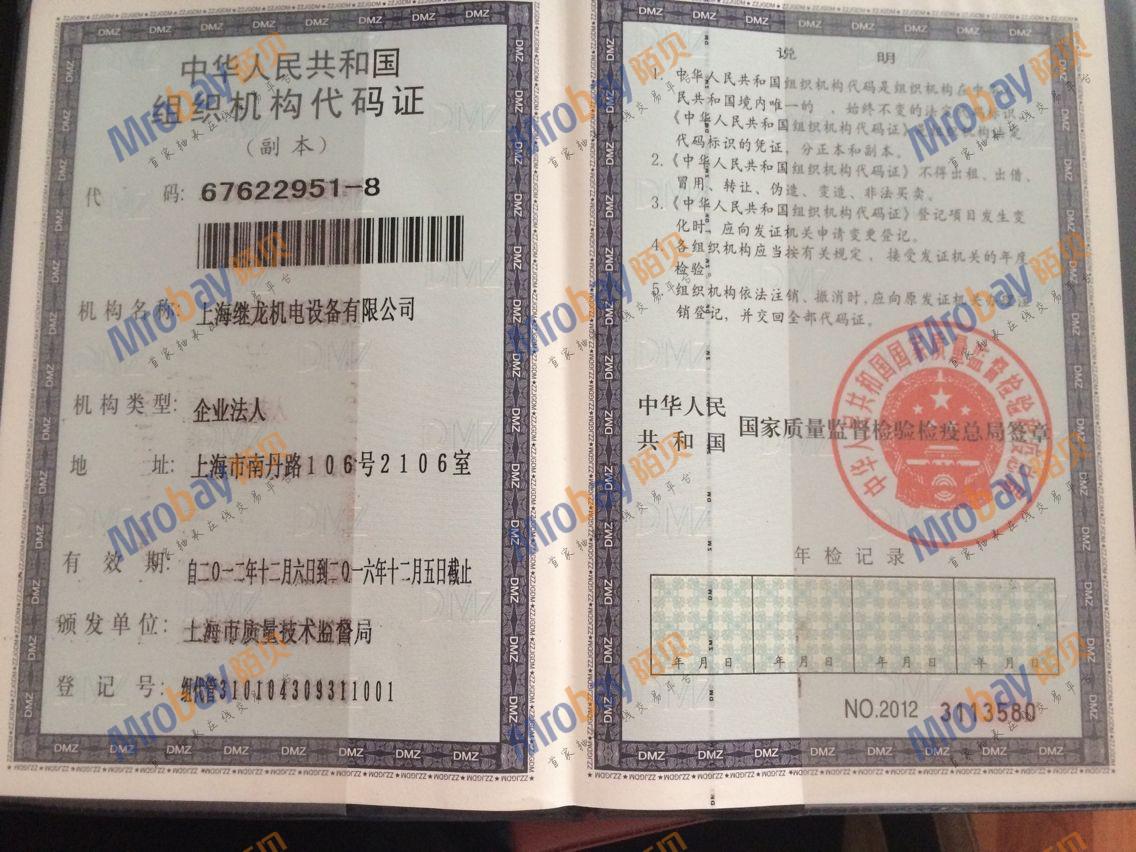 中华人民共和国
组织机构代码证
(副本)
代 码: 67622951-8
机构名称: 上海继龙机电设备有限公司
机构类型: 企业法人
地 址: 上海市南丹路106号2106室
有 效 期: 自二0一二年十二月六日到二0一六年十二月五日截止
颁发单位: 上海市质量技术监督局
登 记 号: 组代管310104309311001
说 明
1. 中华人民共和国组织机构代码是组织机构在中
民共和国境内唯一的、始终不变的法定 标识,
《中华人民共和国组织机构代码证》 组织机构法定
代码标识的凭证,分正本和副本。
2.《中华人民共和国组织机构代码证》不得出租、出借、
冒用、转让、伪造、变造、非法买卖。
3.《中华人民共和国组织机构代码证》登记项目发生变
化时,应向发证机关申请变更登记。
4. 各组织机构应当按有关规定,接受发证机关的年度
检验。
5. 组织机构依法注销、撤消时,应向原发证机关办理注
销登记,并交回全部代码证。
中华人民
共和国 国家质量监督检验检疫总局签章
中华人民共和国国家质量监督检验检疫总局
年检记录
年 月 日 年 月 日 年 月 日 年 月 日
NO.2012 3113580
DMZ
ZZJGDM
Mrobay陌贝
首家轴承在线交易平台